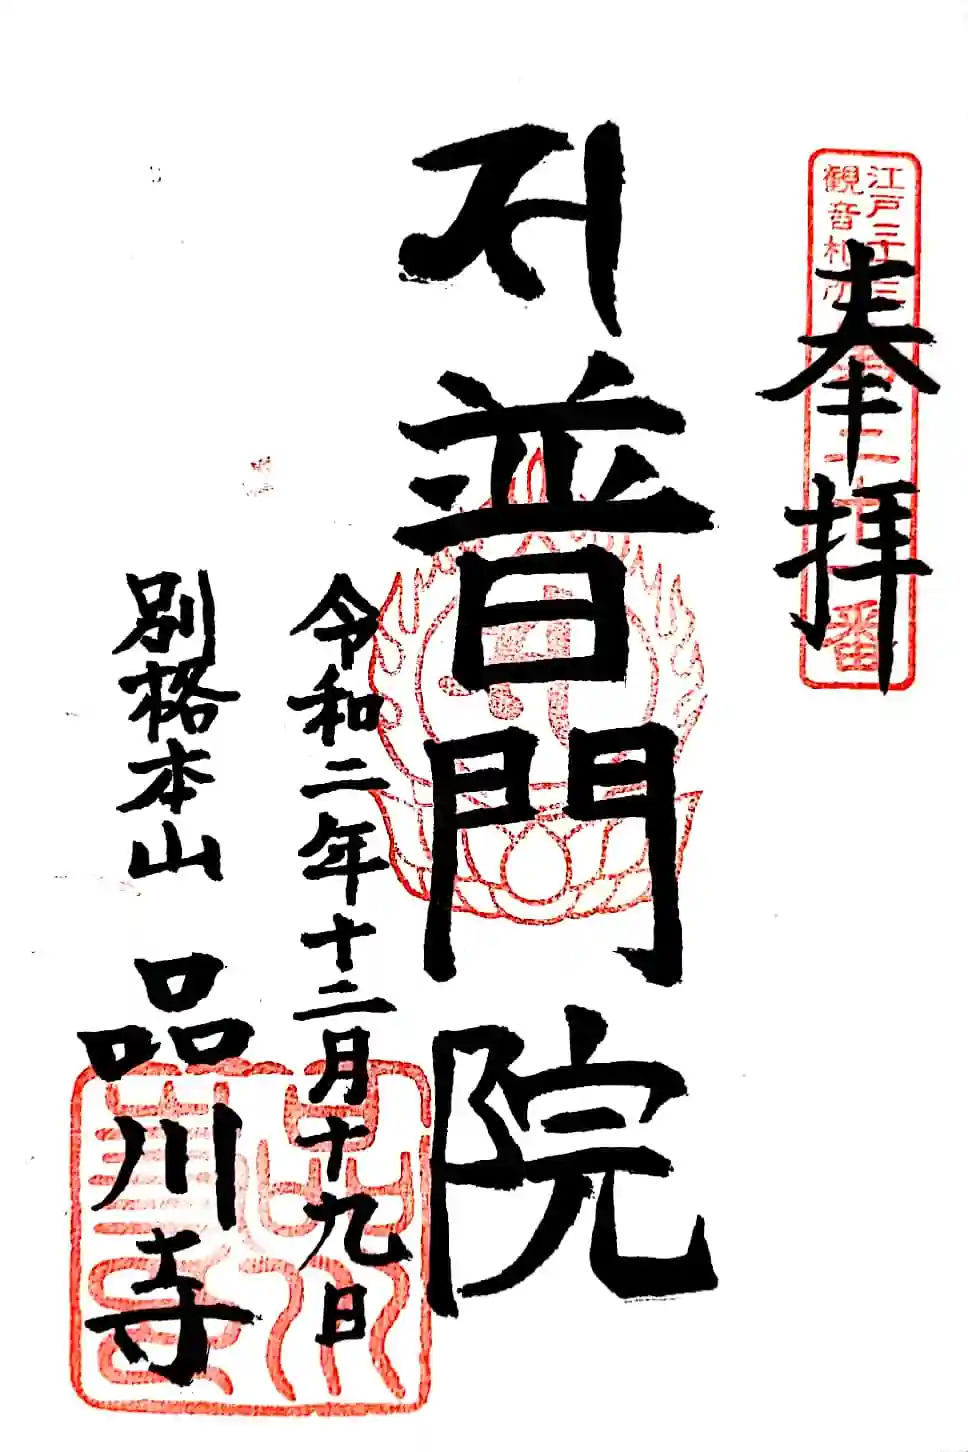 江戸三十三
観音札所
第三十一番
奉拝
普門院
令和二年十二月十九日
別格本山 品川寺